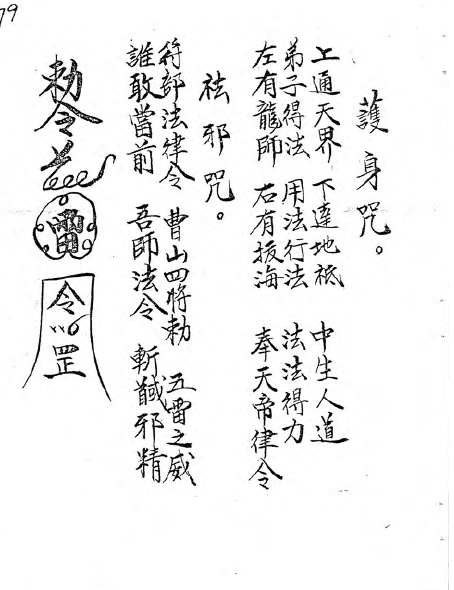 79
護身咒。
上通天界 下達地祇 中生人道
弟子得法 用法行法 法法得力
左有龍師 右有拔海 奉天帝律令
祛邪咒。
符部法律令 曹山四將勅 五雷之威
誰敢當前 吾師法令 斬馘邪精
勅令
雷
令 罡